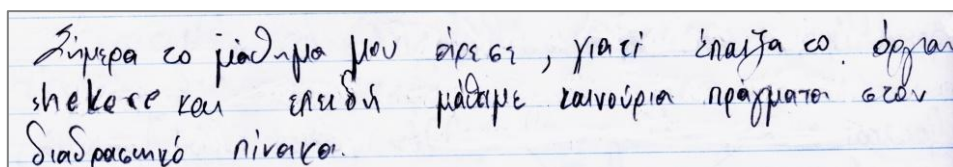 Σήμερα το μάθημα μου άρεσε, γιατί έπαιξα το όργαν
shekere και επειδή μάθαμε καινούρια πράγματα στον
διαδραστικό πίνακα.